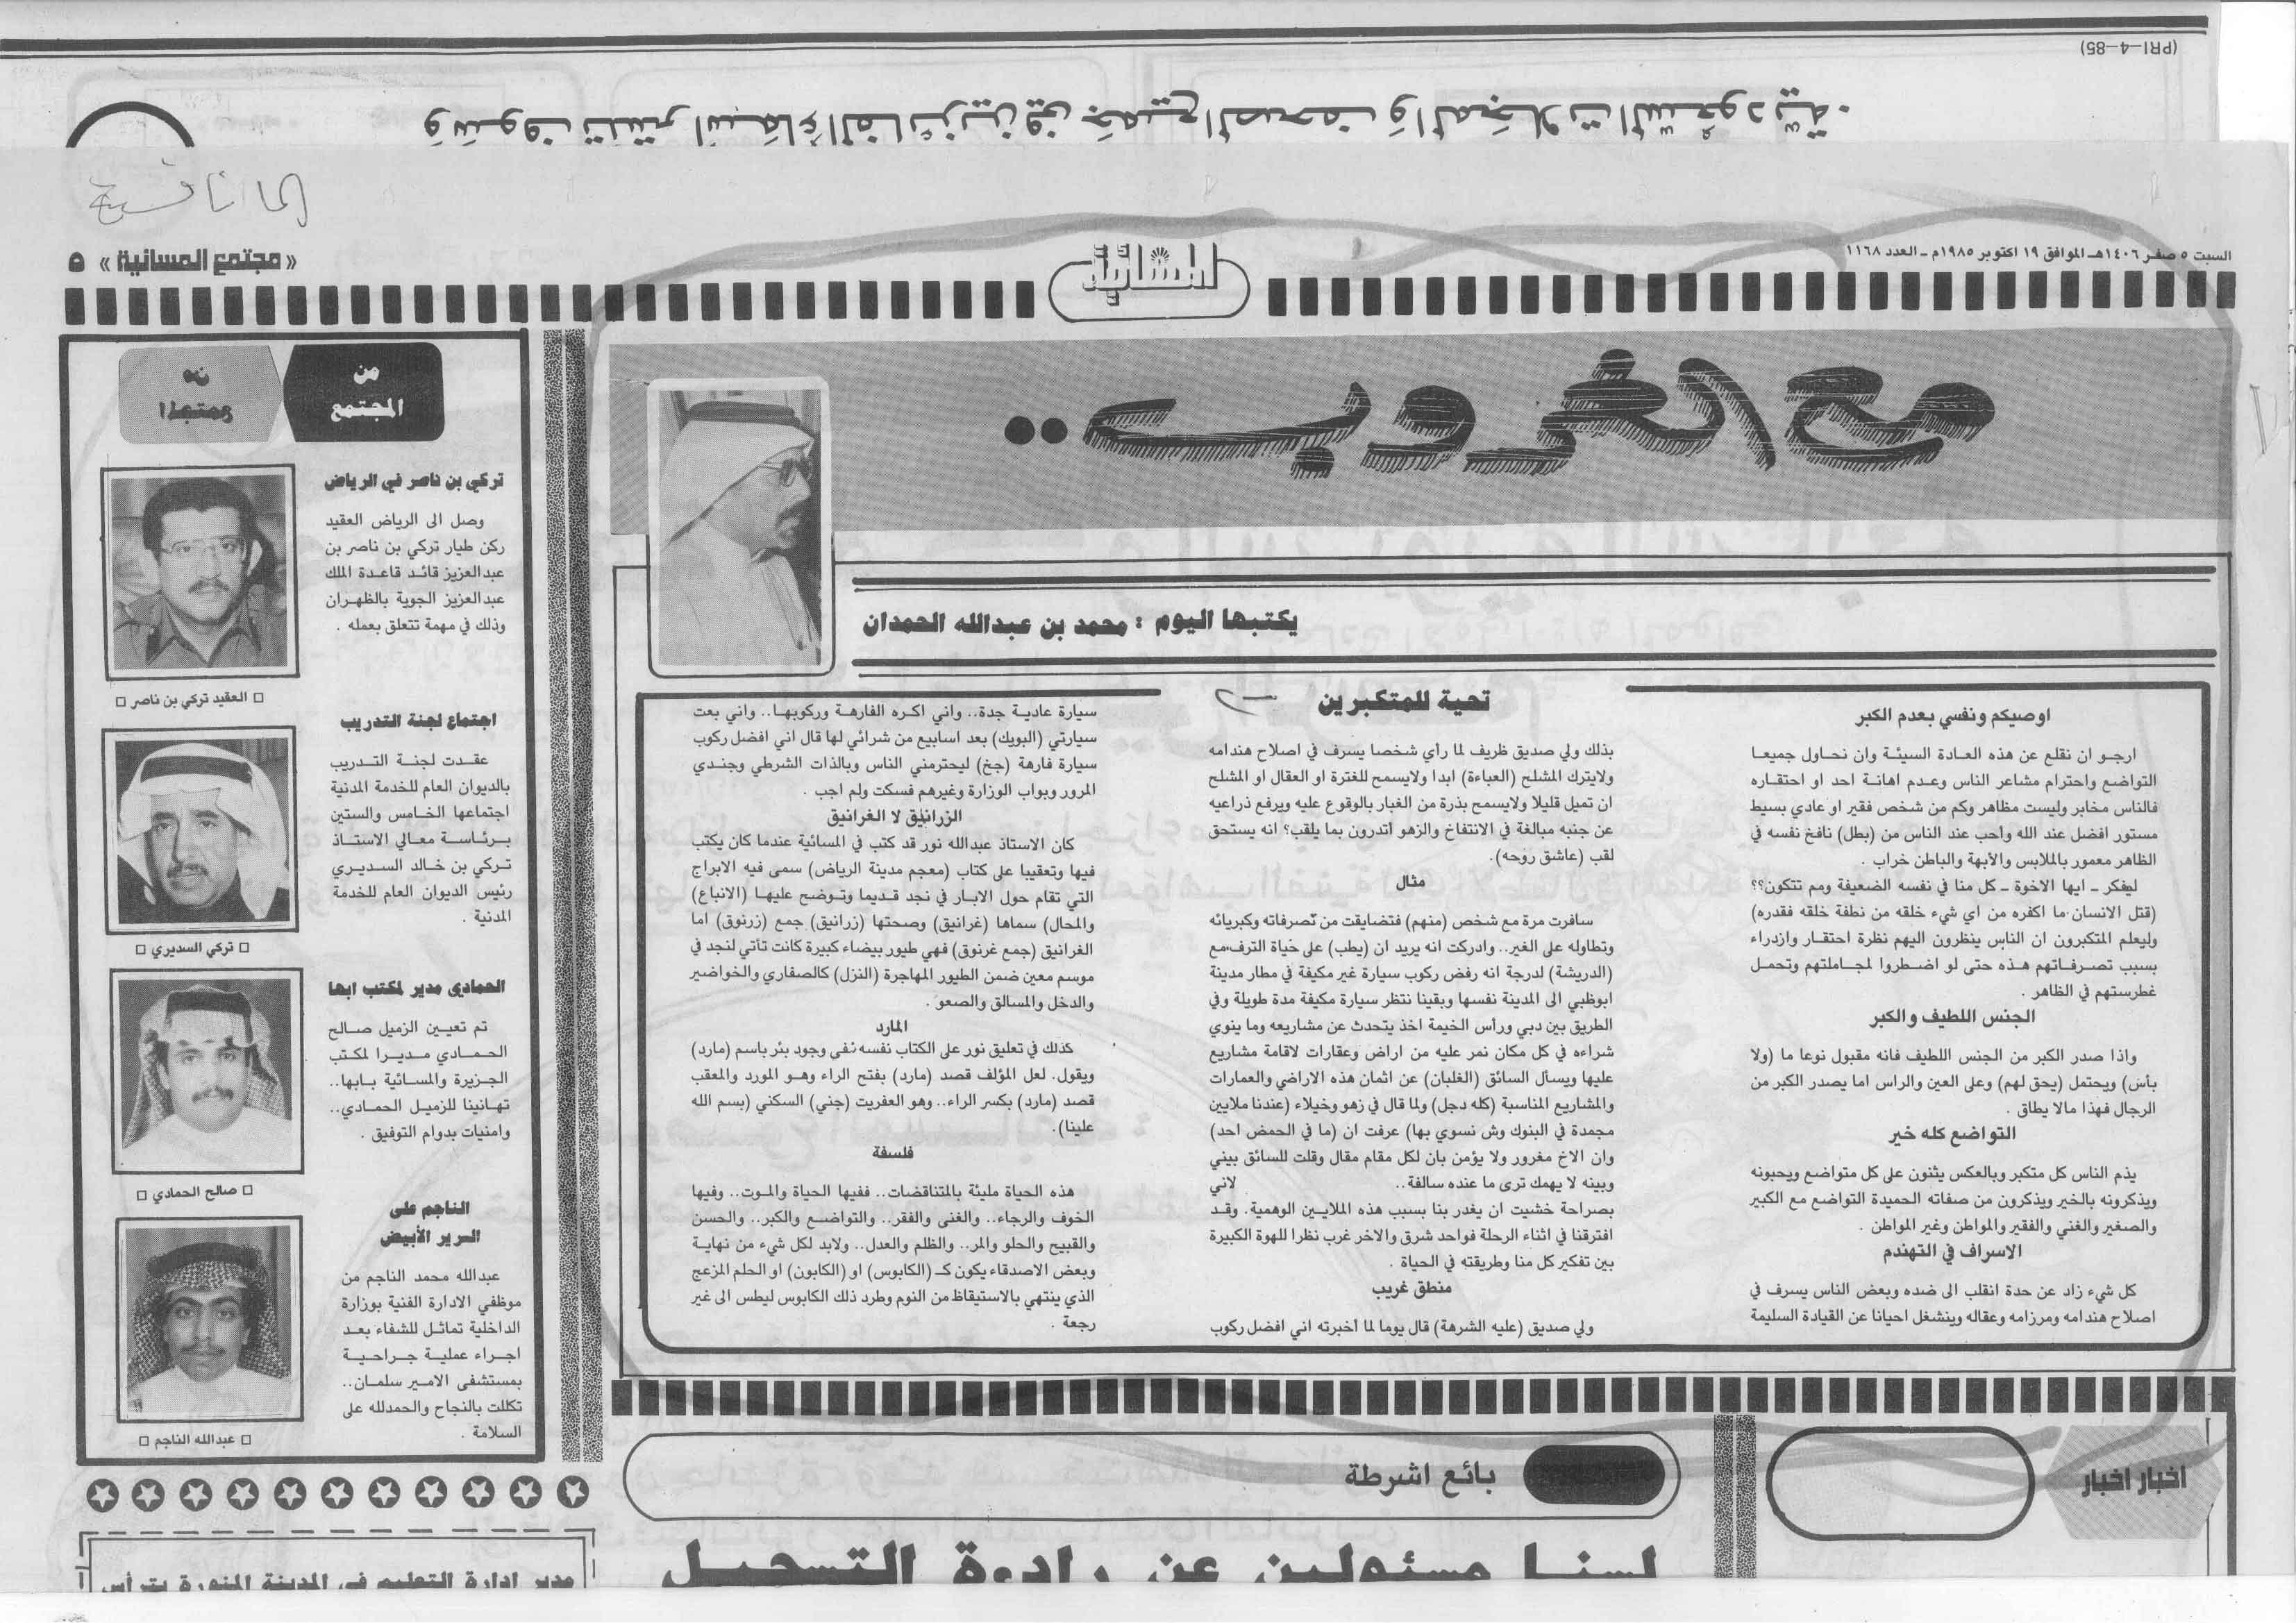 (PRI-4-85)
وسوف تنشر اسماء الفائزين في جميع الصحف والمجلات السعودية.
السبت ٥ صفر ١٤٠٦هـ ـ الموافق ١٩ اكتوبر ١٩٨٥م ـ العدد ١١٦٨
المسائية
«مجتمع المسائية» ٥
مع الغروب ..
يكتبها اليوم : محمد بن عبدالله الحمدان
تحية للمتكبرين
اوصيكم ونفسي بعدم الكبر
ارجو ان نقلع عن هذه العادة السيئة وان نحاول جميعا
التواضع واحترام مشاعر الناس وعدم اهانة احد او احتقاره
فالناس مخابر وليست مظاهر وكم من شخص فقير او عادي بسيط
مستور افضل عند الله وأحب عند الناس من (بطل) نافخ نفسه في
الظاهر معمور بالملابس والأبهة والباطن خراب .
ليفكر ـ ايها الاخوة ـ كل منا في نفسه الضعيفة ومم تتكون؟؟
(قتل الانسان ما اكفره من اي شيء خلقه من نطفة خلقه فقدره)
وليعلم المتكبرون ان الناس ينظرون اليهم نظرة احتقار وازدراء
بسبب تصرفاتهم هذه حتى لو اضطروا لمجاملتهم وتحمل
غطرستهم في الظاهر .
الجنس اللطيف والكبر
واذا صدر الكبر من الجنس اللطيف فانه مقبول نوعا ما (ولا
بأس) ويحتمل (يحق لهم) وعلى العين والراس اما يصدر الكبر من
الرجال فهذا مالا يطاق .
التواضع كله خير
يذم الناس كل متكبر وبالعكس يثنون على كل متواضع ويحبونه
ويذكرونه بالخير ويذكرون من صفاته الحميدة التواضع مع الكبير
والصغير والغني والفقير والمواطن وغير المواطن .
الاسراف في التهندم
كل شيء زاد عن حدة انقلب الى ضده وبعض الناس يسرف في
اصلاح هندامه ومرزامه وعقاله وينشغل احيانا عن القيادة السليمة
بذلك ولي صديق ظريف لما رأي شخصا يسرف في اصلاح هندامه
ولايترك المشلح (العباءة) ابدا ولايسمح للغترة او العقال او المشلح
ان تميل قليلا ولايسمح بذرة من الغبار بالوقوع عليه ويرفع ذراعيه
عن جنبه مبالغة في الانتفاخ والزهو أتدرون بما يلقب؟ انه يستحق
لقب (عاشق روحه).
مثال
سافرت مرة مع شخص (منهم) فتضايقت من تصرفاته وكبريائه
وتطاوله على الغير.. وادركت انه يريد ان (يطب) على حياة الترف مع
(الدريشة) لدرجة انه رفض ركوب سيارة غير مكيفة في مطار مدينة
ابوظبي الى المدينة نفسها وبقينا نتظر سيارة مكيفة مدة طويلة وفي
الطريق بين دبي ورأس الخيمة اخذ يتحدث عن مشاريعه وما ينوي
شراءه في كل مكان نمر عليه من اراض وعقارات لاقامة مشاريع
عليها ويسأل السائق (الغلبان) عن اثمان هذه الاراضي والعمارات
والمشاريع المناسبة (كله دجل) ولما قال في زهو وخيلاء (عندنا ملايين
مجمدة في البنوك وش نسوي بها) عرفت ان (ما في الحمض احد)
وان الاخ مغرور ولا يؤمن بان لكل مقام مقال وقلت للسائق بيني
وبينه لا يهمك ترى ما عنده سالفة.. لاني
بصراحة خشيت ان يغدر بنا بسبب هذه الملايين الوهمية. وقد
افترقنا في اثناء الرحلة فواحد شرق والاخر غرب نظرا للهوة الكبيرة
بين تفكير كل منا وطريقته في الحياة .
منطق غريب
ولي صديق (عليه الشرهة) قال يوما لما أخبرته اني افضل ركوب
سيارة عادية جدة.. واني اكره الفارهة وركوبها.. واني بعت
سيارتي (البويك) بعد اسابيع من شرائي لها قال اني افضل ركوب
سيارة فارهة (جخ) ليحترمني الناس وبالذات الشرطي وجندي
المرور وبواب الوزارة وغيرهم فسكت ولم اجب .
الزرانيق لا الغرانيق
كان الاستاذ عبدالله نور قد كتب في المسائية عندما كان يكتب
فيها وتعقيبا على كتاب (معجم مدينة الرياض) سمى فيه الابراج
التي تقام حول الابار في نجد قديما وتوضح عليها (الانباع)
والمحال) سماها (غرانيق) وصحتها (زرانيق) جمع (زرنوق) اما
الغرانيق (جمع غرنوق) فهي طيور بيضاء كبيرة كانت تأتي لنجد في
موسم معين ضمن الطيور المهاجرة (النزل) كالصفاري والخواضير
والدخل والمسالق والصعو .
المارد
كذلك في تعليق نور على الكتاب نفسه نفى وجود بئر باسم (مارد)
ويقول. لعل المؤلف قصد (مارد) بفتح الراء وهو المورد والمعقب
قصد (مارد) بكسر الراء.. وهو العفريت (جني) السكني (بسم الله
علينا).
فلسفة
هذه الحياة مليئة بالمتناقضات.. ففيها الحياة والموت.. وفيها
الخوف والرجاء.. والغنى والفقر.. والتواضع والكبر.. والحسن
والقبيح والحلو والمر.. والظلم والعدل.. ولابد لكل شيء من نهاية
وبعض الاصدقاء يكون كـ (الكابوس) او (الكابون) او الحلم المزعج
الذي ينتهي بالاستيقاظ من النوم وطرد ذلك الكابوس ليطس الى غير
رجعة .
من
المجتمع
تركي بن ناصر في الرياض
وصل الى الرياض العقيد
ركن طيار تركي بن ناصر بن
عبدالعزيز قائد قاعدة الملك
عبدالعزيز الجوية بالظهران
وذلك في مهمة تتعلق بعمله .
العقيد تركي بن ناصر
اجتماع لجنة التدريب
عقدت لجنة التدريب
بالديوان العام للخدمة المدنية
اجتماعها الخامس والستين
برئاسة معالي الاستاذ
تركي بن خالد السديري
رئيس الديوان العام للخدمة
المدنية .
تركي السديري
الحمادي مدير لمكتب ابها
تم تعيين الزميل صالح
الحمادي مديرا لمكتب
الجزيرة والمسائية بابها..
تهانينا للزميل الحمادي..
وامنيات بدوام التوفيق .
صالح الحمادي
الناجم على
السرير الأبيض
عبدالله محمد الناجم من
موظفي الادارة الفنية بوزارة
الداخلية تماثل للشفاء بعد
اجراء عملية جراحية
بمستشفى الامير سلمان..
تكللت بالنجاح والحمدلله على
السلامة .
عبدالله الناجم
اخبار اخبار
بائع اشرطة
لسنا مسئولين عن رداءة التسجيل
مدير ادارة التعليم في المدينة المنورة يترأس